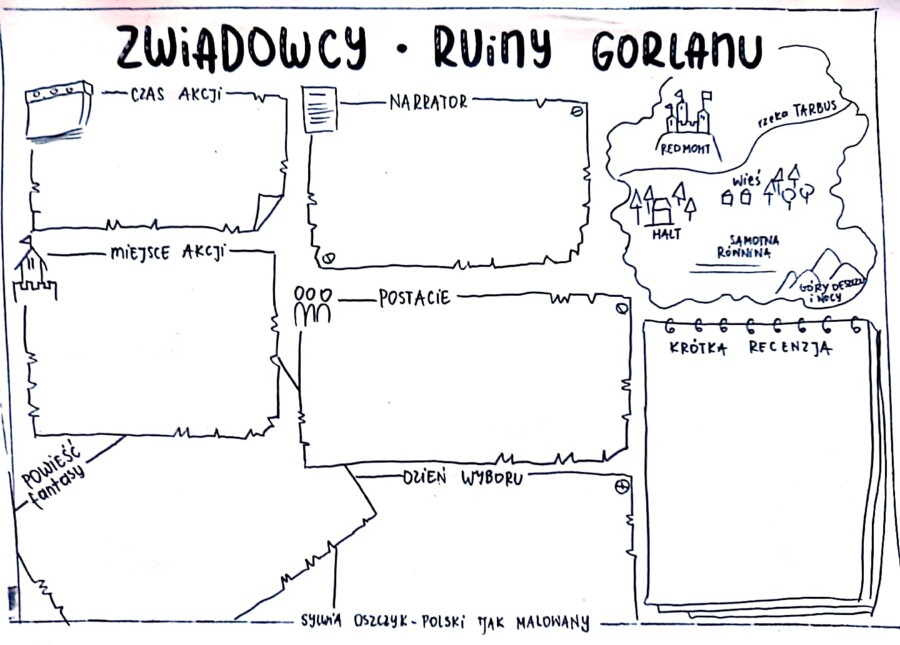 ZWIADOWCY · RUINY GORLANU
CZAS AKCJI
NARRATOR
rzeka TARBUS
REDMONT
wieś
HALT
SAMOTNA
RÓWNINA
GÓRY DESZCZU
i NOCY
MIEJSCE AKCJI
POSTACIE
KRÓTKA RECENZJA
POWIEŚĆ
fantasy
DZIEŃ WYBORU
SYLWIA OSZCZYK - POLSKI JAK MALOWANY